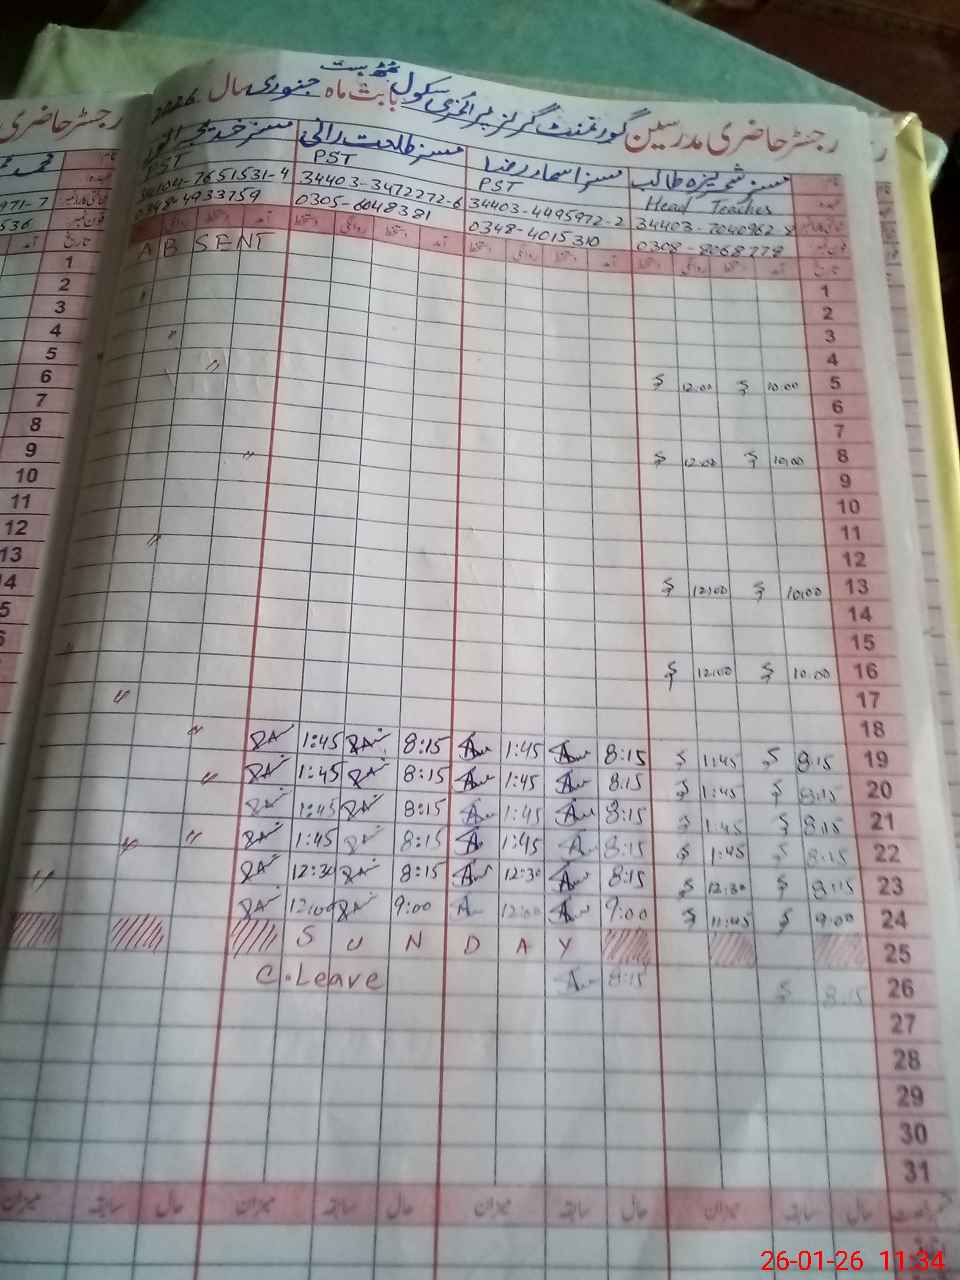 رجسٹر حاضری مدرسین گورنمنٹ گرلز پرائمری سکول بھٹہ بست بابت ماہ جنوری سال 2026
مسز طالب
Head Teacher
34403-7040962-8
0308-8068778
مسز اسماء رضا
PST
34403-4495972-2
0348-4015310
مسز طلعت رانی
PST
34403-3472272-6
0305-6048381
مسز خدیجہ
PST
34104-7651531-4
0348-4933759
تاریخ
آمد دستخط روانگی دستخط
ABSENT
1
2
3
4
5 10.00 12.00
6
7
8 10.00 12.00
9
10
11
12
13 10.00 12.00
14
15
16 10.00 12.00
17
18
19 8:15 1:45 8:15 1:45 8:15 1:45
20 8:15 1:45 8:15 1:45 8:15 1:45
21 8:15 1:45 8:15 1:45 8:15 1:45
22 8:15 1:45 8:15 1:45 8:15 1:45
23 8:15 12:30 8:15 12:30 8:15 12:30
24 9:00 11:45 9:00 12:00 9:00 12:00
25 SUNDAY
26 8:15 8:15 C.Leave
27
28
29
30
31
حال سابقہ میزان حال سابقہ میزان حال سابقہ میزان حال سابقہ میزان
رجسٹر حاضری
971-7
536
تاریخ آمد
1
2
3
4
5
6
7
8
9
10
11
12
13
14
26-01-26 11:34